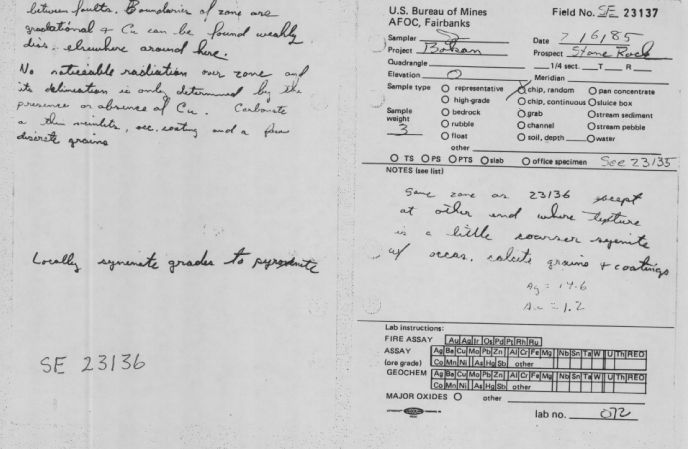 between faults. Boundaries of zone are
gradational + Cu can be found weakly
diss. elsewhere around here.
No noticeable radiation over zone and
its delineation is only determined by the
presence or absence of Cu. Carbonate
a thin veinlets, occ. coating and a few
discrete grains
Locally syenite grades to pyroxenite
SE 23136
U.S. Bureau of Mines
AFOC, Fairbanks
Field No. SE 23137
Sampler
Date 7/6/85
Project Bokan
Prospect Stone Rock
Quadrangle
1/4 sect. T R
Elevation
Meridian
Sample type
O representative
O chip, random
O pan concentrate
O high-grade
O chip, continuous
O sluice box
Sample weight 3
O bedrock
O grab
O stream sediment
O rubble
O channel
O stream pebble
O float
O soil, depth
O water
other
O TS O PS O PTS O slab O office specimen See 23135
NOTES (see list)
Same zone as 23136 except
at other end where texture
is a little coarser syenite
w/ occas. calcite grains + coatings
Ag = 14.6
Au = 1.2
Lab instructions:
FIRE ASSAY Au Ag Ir Os Pd Pt Rh Ru
ASSAY Ag Ba Cu Mo Pb Zn Al Cr Fe Mg Nb Sn Ta W U Th REO
(ore grade) Co Mn Ni As Hg Sb other
GEOCHEM Ag Ba Cu Mo Pb Zn Al Cr Fe Mg Nb Sn Ta W U Th REO
Co Mn Ni As Hg Sb other
MAJOR OXIDES O other
lab no. 072